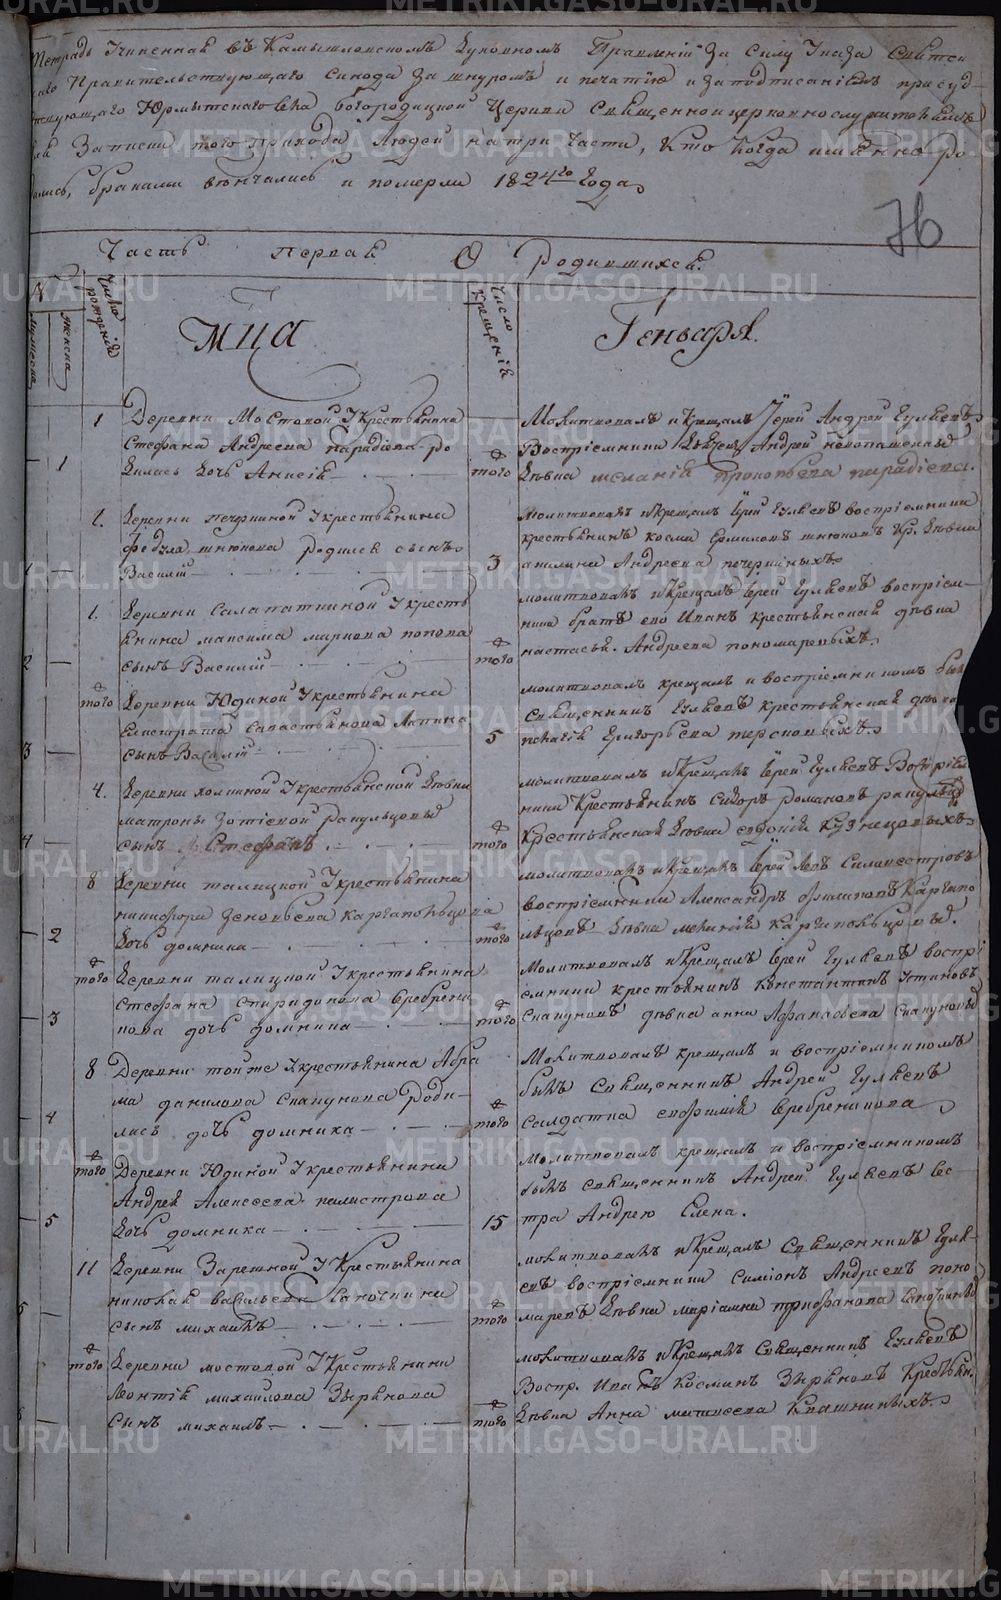 Тетрадь Учиненная въ Камышловскомъ Духовномъ Правленіи За Силу Указа Святей
шаго Правительствующаго Синода За шнуромъ и печатію и за подписаніемъ присуд-
ствующаго Юрмытскаго села богородицкой Церкви Священноцерковнослужителямъ
для Записки того прихода Людей на три Части, Кто когда именно ро
дились, браками вѣнчались и померли 1824го Года
76
Часть первая О родившихся.
№
мужеска
женска
Число рожденія
Мца
Число Крещенія
Генваря.
1
1
Деревни Мостовой У Крестьянина
Стефана Андреева парадіева ро
дилась дочь Анисія
того
Молитвовалъ и Крещалъ Іерей Андрей Гуляевъ
Воспріемники Андрей
Дѣвка меланія прокопьева парадіева.
1
2.
деревни печеркиной У крестьянина
федула шнюкова родился сынъ
Василій
3
молитвовалъ и Крещалъ Іерей Гуляевъ воспріемники
крестьянинъ косма Ермиловъ шнюковъ Кр. дѣвка
акилина Андреева печеркиныхъ
2
2.
деревни Салапаткиной У кресть
янина максима маркова попова
сынъ Василій
того
молитвовалъ и Крещалъ Іерей Гуляевъ воспріем-
ники братъ его Иванъ крестьянская дѣвка
настасья Андреева пономаревыхъ
3
того
деревни Юдиной У крестьянина
Елистрата Савастьянова Лапина
сынъ Василій
5
молитвовалъ крещалъ и воспріемникомъ былъ
Священникъ Гуляевъ крестьянская дѣвка
пелагія Григорьева терсковыхъ
4
4.
деревни холкиной У крестьянской дѣвки
матроны Зотіевой ракульцовы
сынъ Стефанъ
того
молитвовалъ и Крещалъ Іерей Гуляевъ Воспріем
ники Крестьянинъ Сидоръ романовъ ракульцо
Крестьянская дѣвка евдокія Кузнецовыхъ
2
8
деревни талицкой У крестьянина
никифора Зеновьева каргапольцова
дочь домника
того
молитвовалъ и Крещалъ Іерей Левъ Силвестровъ
воспріемники Александръ филиповъ Каргапо
льцовъ дѣвка меланія каргапольцовы.
3
того
деревни талицкой У крестьянина
Стефана Спиридонова Серебрени
кова дочь домника
того
Молитвовалъ и Крещалъ Іерей Гуляевъ воспрі
емники крестьянинъ Константинъ Устиновъ
Скакуновъ дѣвка анна Афанасьева Скакуновы
4
8
Деревни тойже У крестьянина Авра
ма данилова Скакунова роди-
лась дочь домника
того
Молитвовалъ крещалъ и воспріемникомъ
былъ Священникъ Андрей Гуляевъ
Солдатка евфимія Серебреникова
5
того
Деревни Юдиной У крестьянина
Андрея Алексеева калистрова
дочь домника
15
Молитвовалъ крещалъ и воспріемникомъ
былъ священникъ Андрей Гуляевъ сес-
тра Андрею Елена.
5
11
деревни Зарешной У Крестьянина
николая васильева
сынъ михаилъ
того
молитвовалъ и Крещалъ Священникъ Гуля-
евъ воспріемники Симіонъ Андреевъ поно
маревъ дѣвка маріамна трифанова
6
того
деревни мостовой У Крестьянина
Леонтія михаилова Зырянова
Сынъ михаилъ
того
молитвовалъ и Крещалъ Священникъ Гуляевъ
Воспр. Иванъ Косминъ Зыряновъ Крестьян.
дѣвка Анна матвеева Квашниныхъ
METRIKI.GASO-URAL.RU